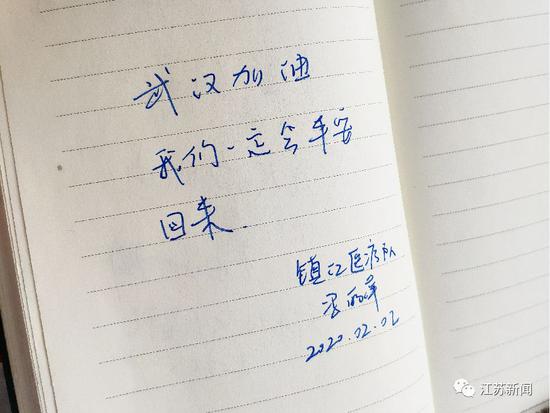 武汉加油
我们一定会平安
回来.
镇江医疗队
2020.02.02
江苏新闻